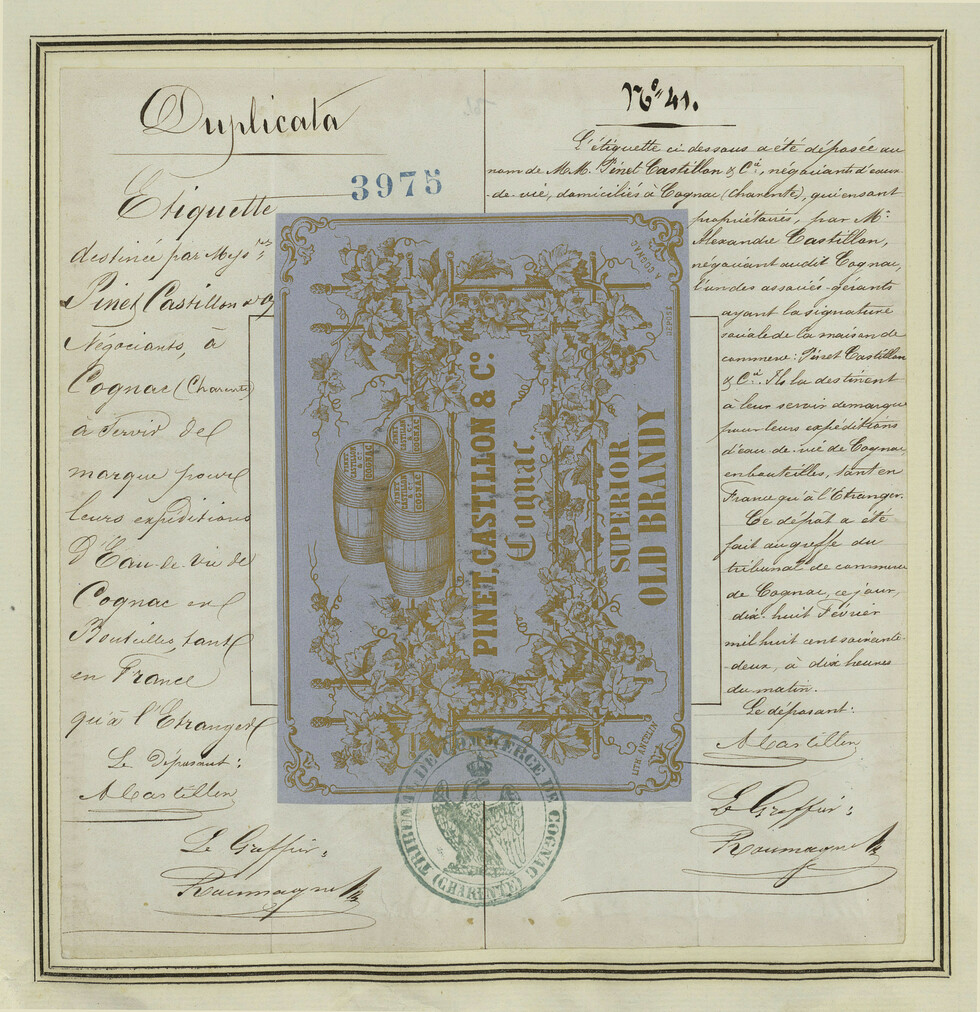 Duplicata
3975
Etiquette
destinée par Mess.rs
Pinet Castillon & Cie
Négociants, à
Cognac (Charente)
à Servir de
marque pour
leurs expéditions
D'Eau-de-vie de
Cognac en
Bouteilles, tant
en France
qu'à l'Etranger
Le Déposant:
A Castillon
Le Greffier:
Roumagne
No. 41.
L'étiquette ci dessous a été déposée au
nom de M.M. Pinet Castillon & Cie, négociants d'eaux-
-de-vie, domiciliés à Cognac (Charente), qui en sont
propriétaires, par Mr.
Alexandre Castillon,
négociant audit Cognac,
l'un des associés-gérants
ayant la signature
sociale de la maison de
commerce: Pinet Castillon
& Cie. Ils la destinent
à leur servir de marque
pour leurs expéditions
d'eau-de-vie de Cognac
en bouteilles, tant en
France qu'à l'Etranger.
Ce dépôt a été
fait au greffe du
tribunal de commerce
de Cognac, ce jour,
dix-huit Février
mil huit cent soixante-
-deux, à dix heures
du matin.
Le déposant:
A Castillon
Le Greffier:
Roumagne
PINET, CASTILLON & Co.
COGNAC
PINET
CASTILLON
& Co.
COGNAC
PINET
CASTILLON
& Co.
COGNAC
PINET, CASTILLON & Co.
Cognac.
SUPERIOR
OLD BRANDY
DÉPOSÉ
A COGNAC
TRIBUNAL DE COMMERCE DE COGNAC
(CHARENTE)